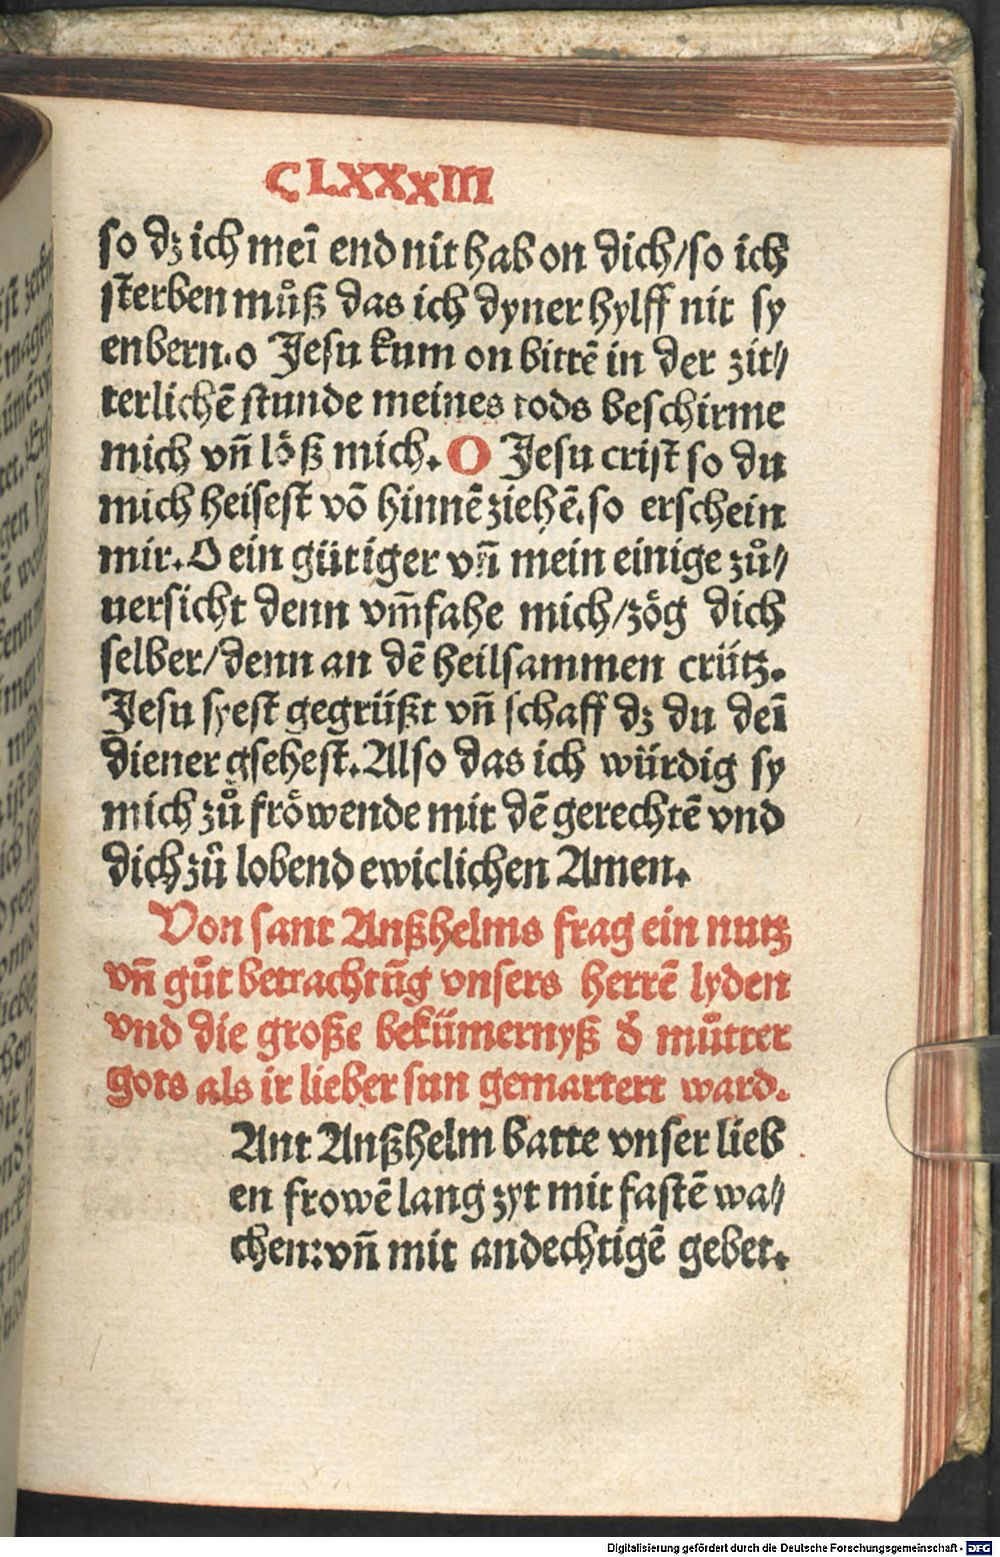 CLXXXIII
so dz ich meī end nit hab on dich/so ich
sterben můß das ich dyner hylff nit sy
enbern.o Jesu kum on bittē in der zit⸗
terlichē stunde meines tods beschirme
mich vn̄ lo̊ß mich. O Jesu crist so du
mich heisest vō hinnē ziehē.so erschein
mir. O ein gütiger vn̄ mein einige zů⸗
uersicht denn vm̄fahe mich/zög dich
selber/denn an dē heilsammen crütz.
Jesu syest gegrüßt vn̄ schaff dz du deī
diener gsehest. Also das ich würdig sy
mich zů fröwende mit dē gerechtē vnd
dich zů lobend ewiclichen Amen.
Von sant Anßhelms frag ein nutz
vn̄ gůt betrachtūg vnsers herrē lyden
vnd die große bekümernyß d̕ můtter
gots als ir lieber sun gemartert ward.
Ant Anßhelm batte vnser lieb
en frowē lang zyt mit fastē wa⸗
chen:vn̄ mit andechtigē gebet.
Digitalisierung gefördert durch die Deutsche Forschungsgemeinschaft - DFG